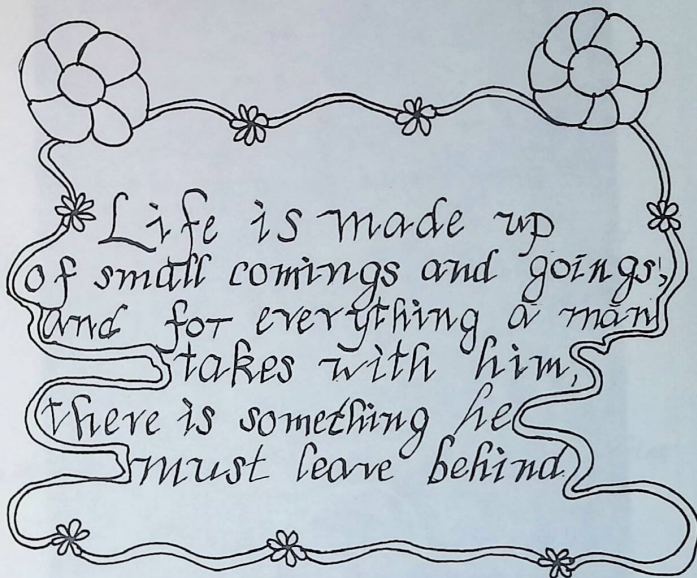 Life is made up
of small comings and goings,
and for everything a man
takes with him,
there is something he
must leave behind